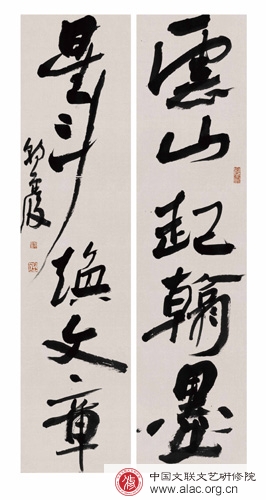 雲山起翰墨
星斗焕文章
中国文联文艺研修院
www.alac.org.cn